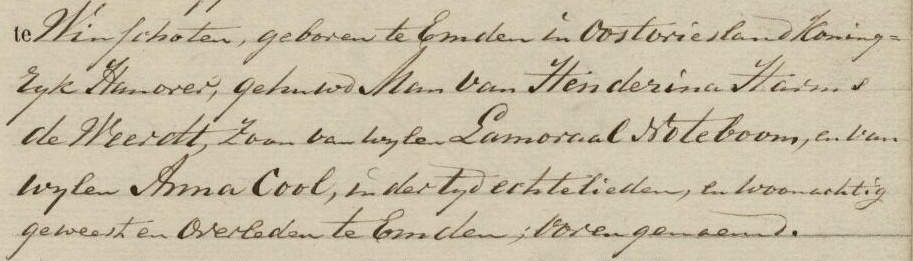 te Winschoten, geboren te Emden in Oostvriesland Koning=
ryk Hanover, gehuwd Man van Henderina Harms
de Weerdt, Zoon van wylen Lamoraal Noteboom, en van
wylen Anna Cool, in der tyd echtelieden, en woonachtig
geweest en Overleden te Emden, voren genoemd.